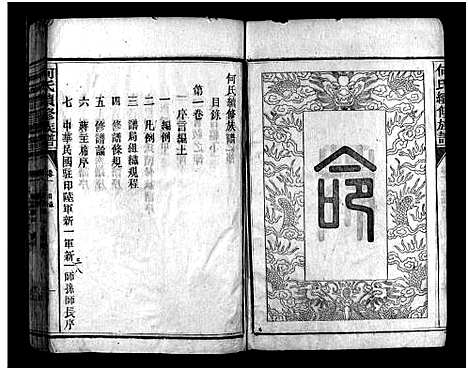 命
何氏續修族譜
目錄
第一卷
序言編上
一 編例
二 凡例
三 譜局組織規程
四 修譜條規
五 修譜論
六 蔣主席序
七 中華民國駐印陸軍新一軍新一師孫師長序
三八
何氏續修族譜